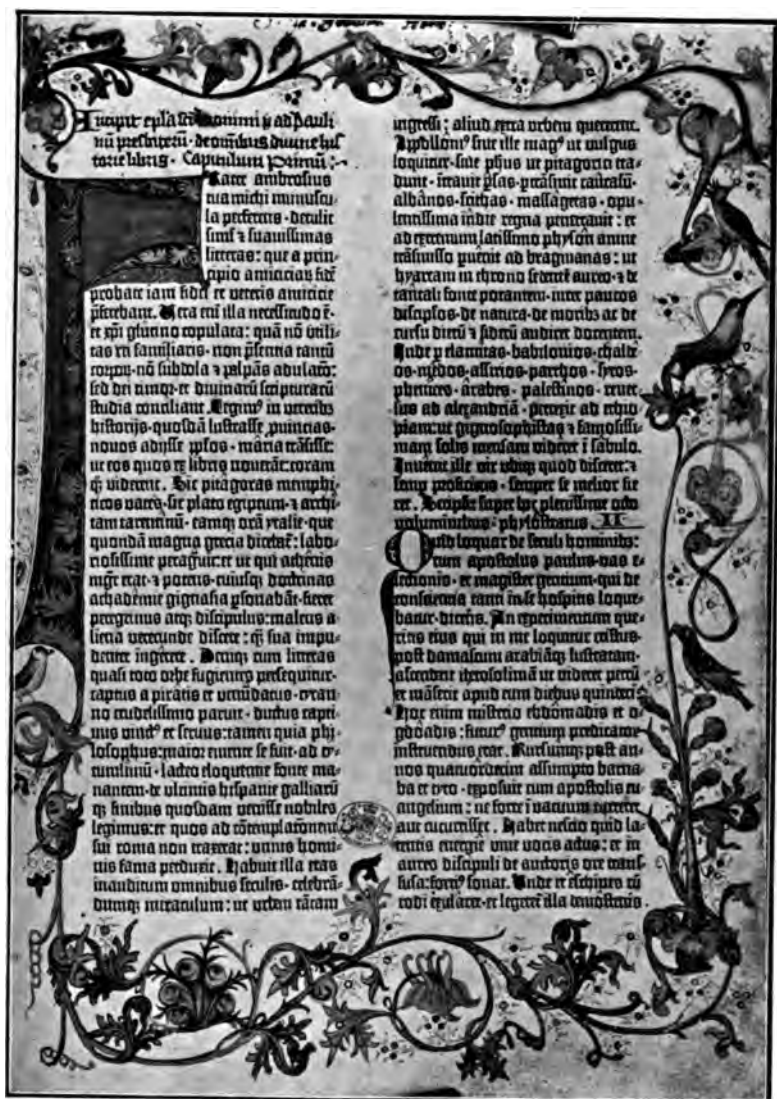 Incipit epla sancti iheronimi p̄ ad Pauli⸗
nū presbiterū · de omībus diuine his⸗
torie libris · Capitulum Primū :
Frater ambrosius
tua michi munuscu⸗
la perferens · detulit
siml' ⁊ suauissimas
litteras: que a prin⸗
cipio amiciciarū fidē
probate iam fidei et veteris amicicie
p̄ferebant. Vera enī illa necessitudo ē·
et xpi glutino copulata: quā nō vtili⸗
tas rei familiaris· non p̄sentia tantū
corporū· nō subdola ⁊ palpās adulatō:
sed dei timor· et diuinarū scripturarū
studia conciliant. Legimꝰ in veteribꝫ
historijs · quosdā lustrasse puincias·
nouos adijsse pplos · maria trāsisse:
ut eos quos ex libris nouerāt: coram
q̄ꝫ viderent. Sic pitagoras memphi⸗
ticos vates· sic plato egiptum · ⁊ archi⸗
tam tarentinū· eamqꝫ orā ytalie· que
quondā magna grecia dicebat᷑: labo⸗
riosissime peragrauit: et ut qui athenis
mgr̄ erat· ⁊ potens· cuiusqꝫ doctrinas
achademie gignasia psonabāt· fieret
peregrinus atqꝫ discipulus: malens a⸗
liena verecunde discere: q̄ꝫ sua impu⸗
denter ingerere. Deniqꝫ cum litteras
quasi toto orbe fugientes persequit᷑·
captus a piratis et venūdatus · tyran⸗
no crudelissimo paruit· ductus capti⸗
uus vinctꝰ et seruus: tamen quia phi⸗
losophus: maior emente se fuit· ad ty⸗
tumliuiū· lacteo eloquentie fonte ma⸗
nantem· de vltimis hispanie galliarū⸗
qꝫ finibus quosdam venisse nobiles
legimus: et quos ad cōtemplatōnem
sui roma non traxerat: vnius homi⸗
nis fama perduxit. Habuit illa etas
inauditum omnibus seculis· celebrā⸗
dumqꝫ miraculum: ut vrbem tātam
ingressi: aliud extra vrbem quererent.
Appollonꝰ siue ille magꝰ ut vulgus
loquitur· siue phus ut pitagorici tra⸗
dunt· intrauit psas· ptrāsiuit caucasū·
albanos· scithas· massagetas · opu⸗
lentissima indie regna penetrauit : et
ad extremum latissimo physon amne
trāsmisso puenit ad bragmanas: ut
hyarcam in throno sedentē aureo· ⁊ de
tantali fonte potantem· inter paucos
discipulos· de natura· de moribꝫ ac de
cursu dierū ⁊ siderū audiret docentem.
Inde p elamitas· babilonios· chalde⸗
os· medos· assirios· parthos· syros·
phenices· arabes· palestinos· reuer⸗
sus ad alexandriā· perrexit ad ethio⸗
piam: ut gignosophistas ⁊ famosissi⸗
mam solis mensam videret ī sabulo.
Inuenit ille vir vbiqꝫ quod disceret: ⁊
semp proficiens· semper se melior fie⸗
ret. Scripsit super hoc plenissime octo
voluminibus· phylostratus. II
Quid loquar de seculi hominibꝫ:
cum apostolus paulus· vas e⸗
lectionis· et magister gentium· qui de
consciencia tanti in se hospitis loque⸗
batur· dicens. An experimentum que⸗
ritis eius qui in me loquitur cristus.
Post damascum arabiāqꝫ lustratam·
ascenderit iherosolimā ut videret petrū
et māserit apud eum diebus quindecī.
Hoc enim misterio ebdomadis et o⸗
gdoadis: futurꝰ gentium predicator
instruendus erat. Rursumqꝫ post an⸗
nos quatuordecim assumpto barna⸗
ba et tyto · exposuit cum apostolis eu⸗
angelium: ne forte ī vacuum curreret
aut cucurrisset. Habet nescio quid la⸗
tentis energie viue vocis actus: et in
aures discipuli de auctoris ore trans⸗
fusa: fortiꝰ sonat. Vnde et eschines cū
rodi exularet· et legeret᷑ illa demostenis